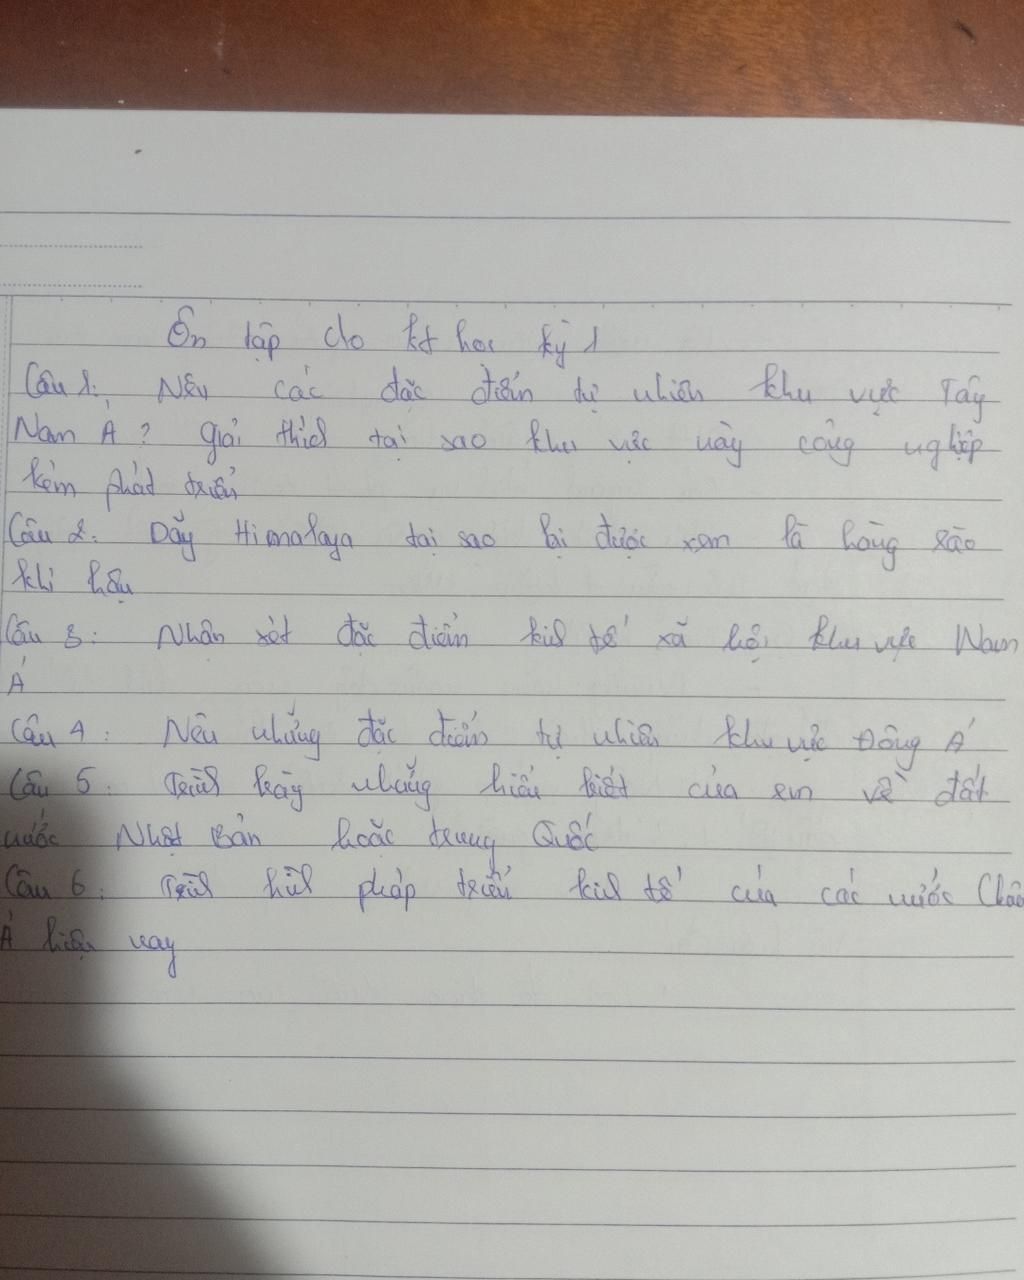 Ôn tập cho kt học kỳ 1
Câu 1: Nêu các đặc điểm tự nhiên khu vực Tây
Nam Á? Giải thích tại sao khu vực này công nghiệp
kém phát triển
Câu 2: Dãy Himalaya tại sao lại được xem là hàng rào
khí hậu
Câu 3: Nhận xét đặc điểm kinh tế xã hội khu vực Nam
Á
Câu 4: Nêu những đặc điểm tự nhiên khu vực Đông Á
Câu 5: Trình bày những hiểu biết của em về đất
nước Nhật Bản hoặc Trung Quốc
Câu 6: Tình hình pháp triển kinh tế của các nước Châu
Á hiện nay